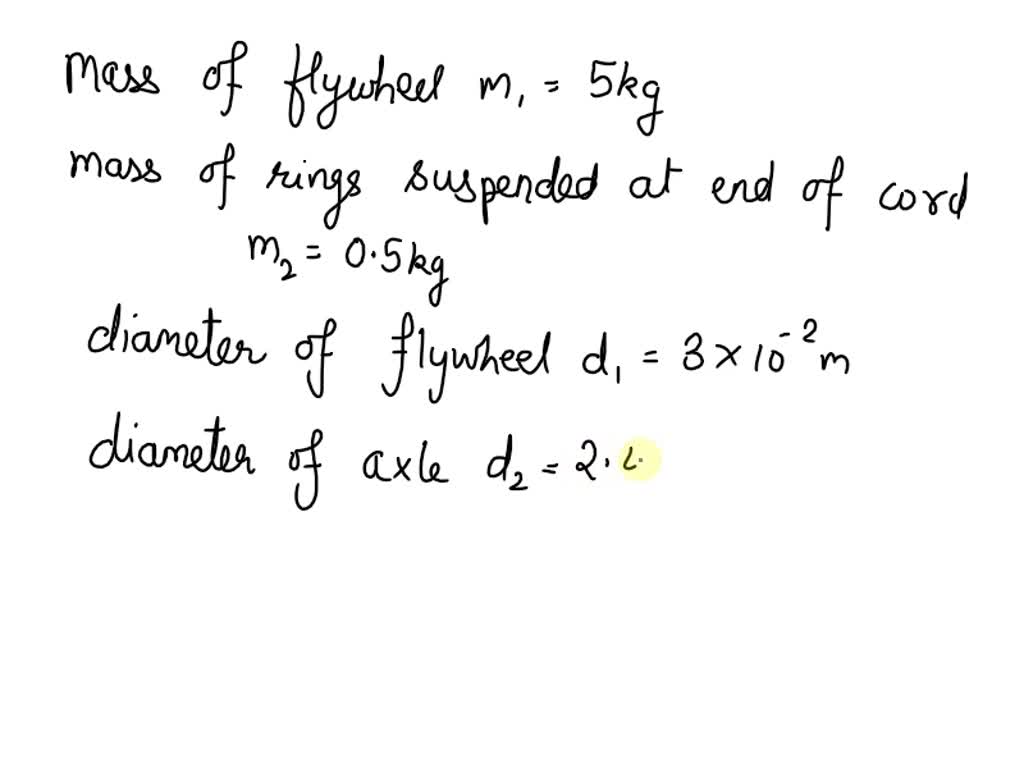 Mass of flywheel m₁ = 5kg
mass of rings suspended at end of cord
m₂ = 0.5kg
diameter of flywheel d₁ = 3 × 10⁻² m
diameter of axle d₂ = 2.